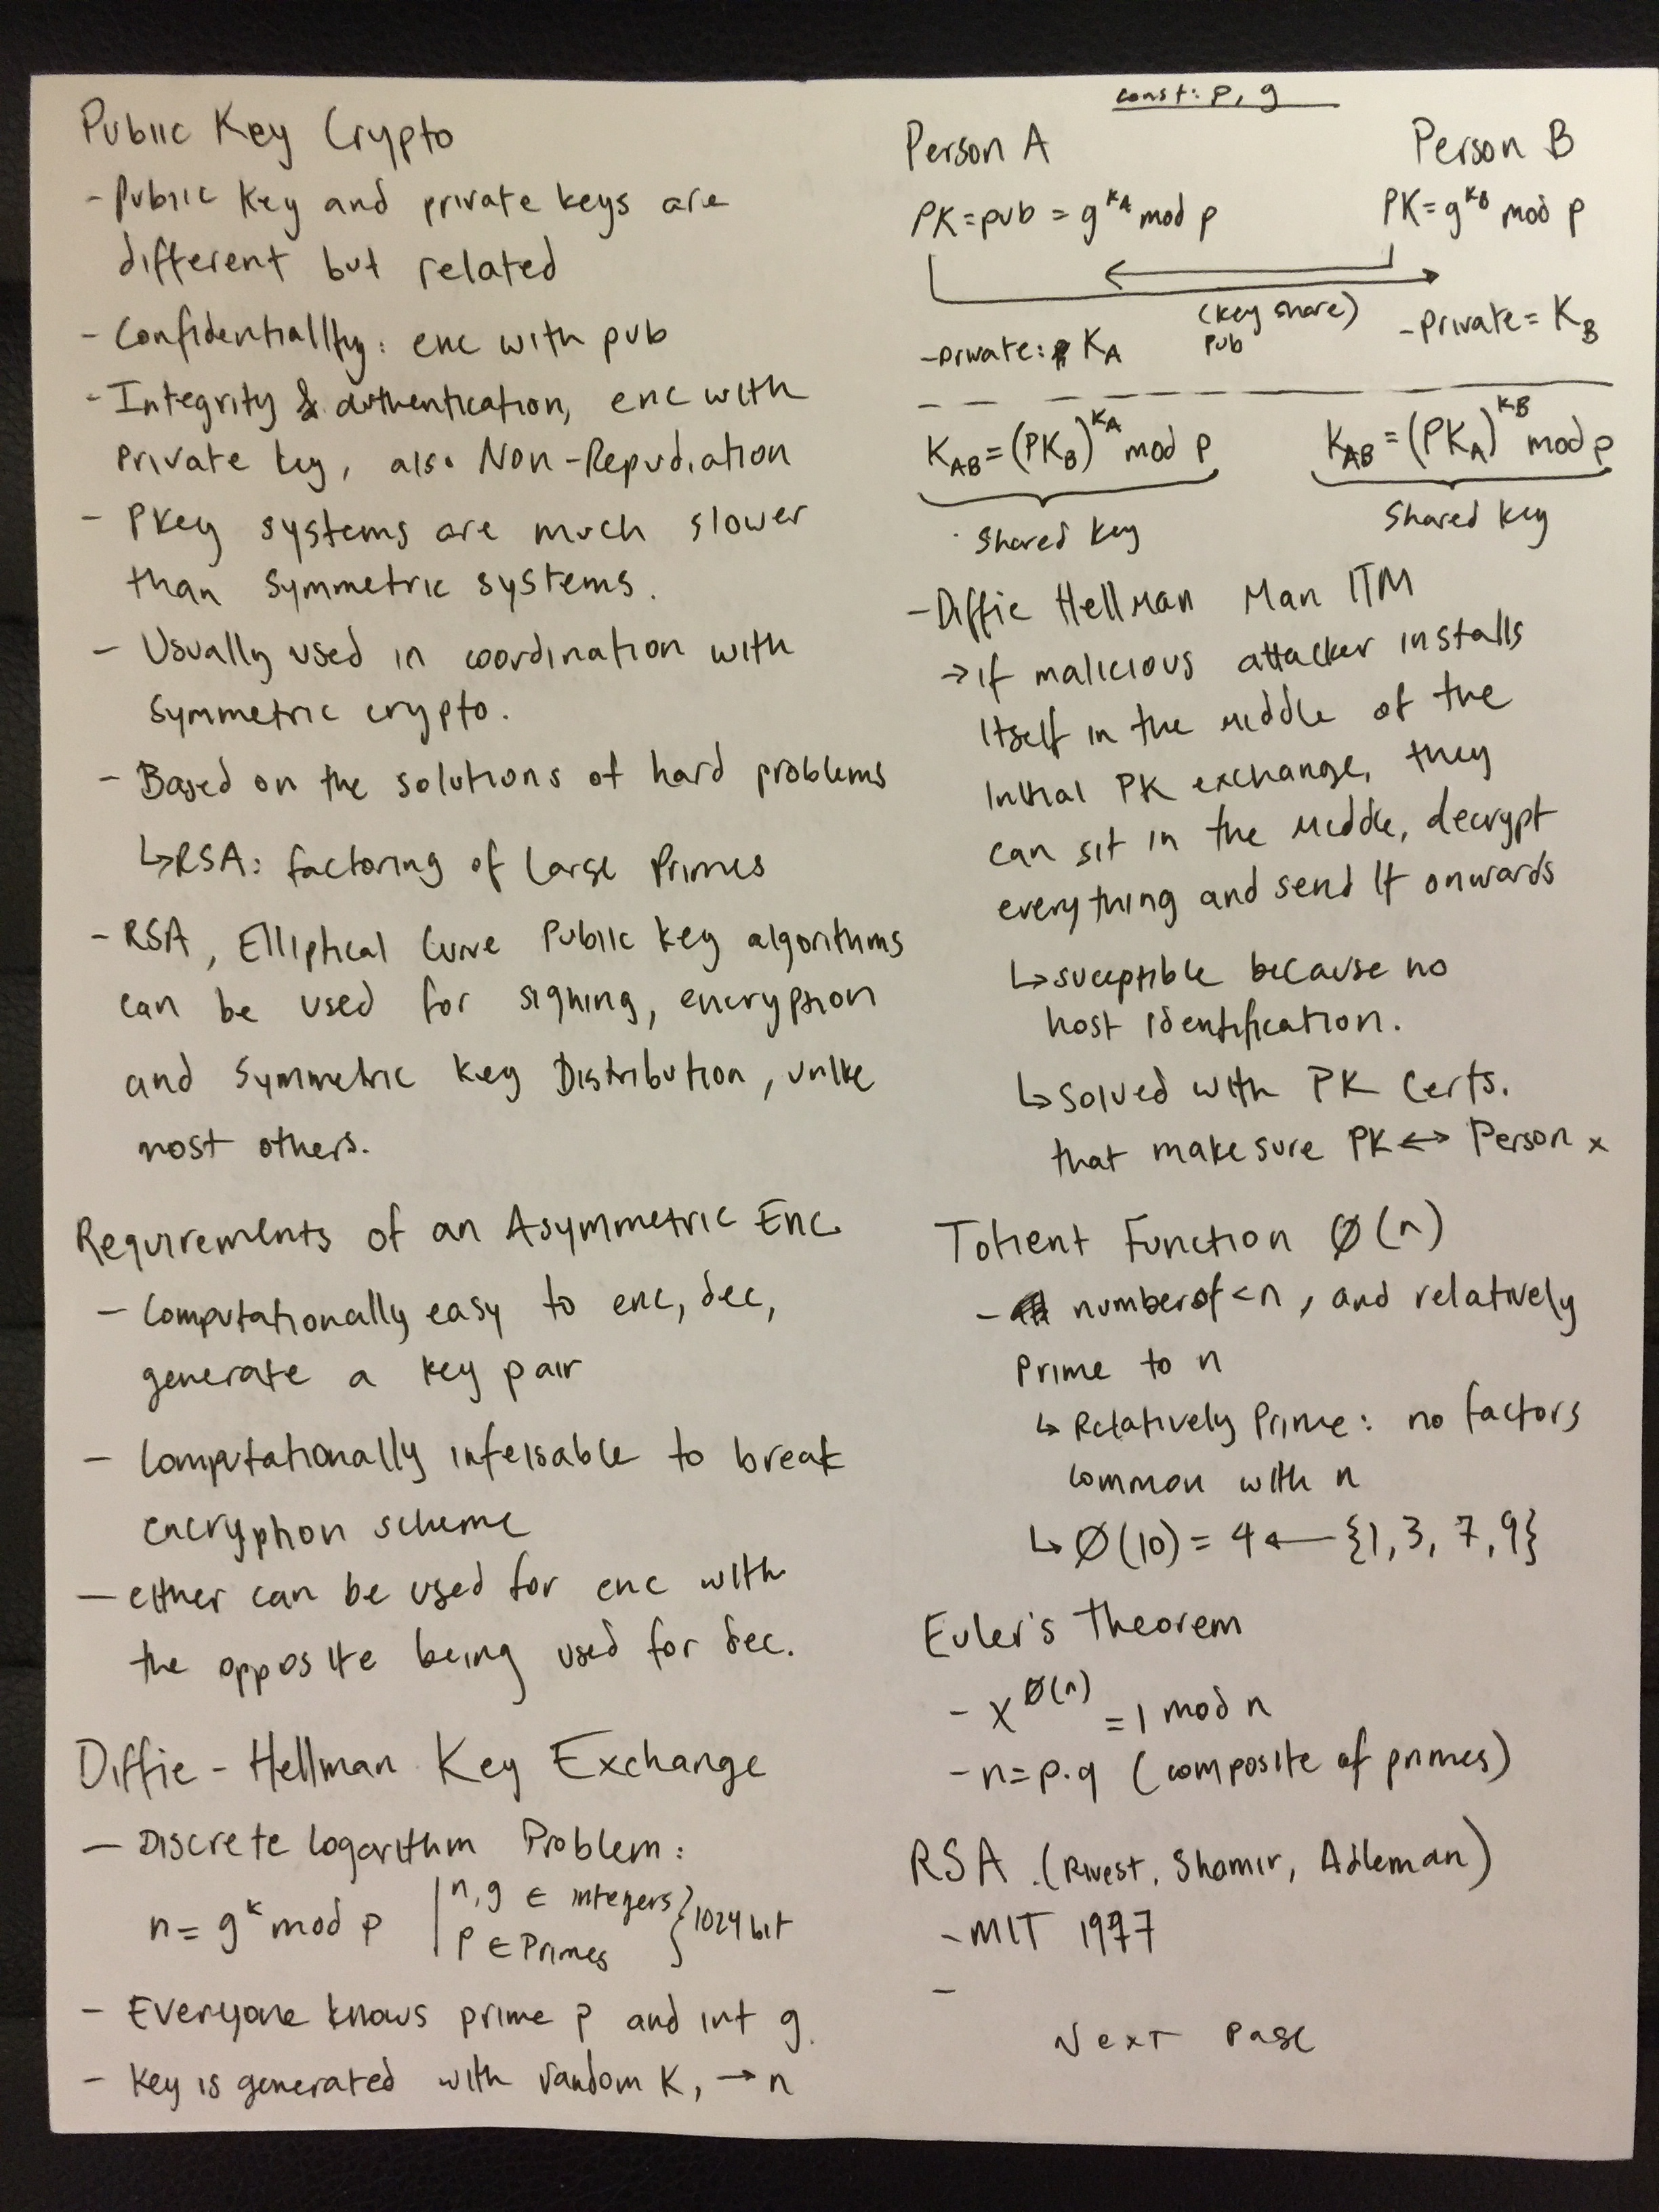 Public Key Crypto
- Public Key and private keys are
different but related
- Confidentiallty: enc with pub
- Integrity & authentication, enc with
private key, also Non-Repudiation
- PKey systems are much slower
than symmetric systems.
- Usually used in coordination with
symmetric crypto.
- Based on the solutions of hard problems
↳RSA: factoring of large Primes
- RSA, Elliptical Curve Public key algorithms
can be used for signing, encryption
and Symmetric Key Distribution, unlike
most others.
Requirements of an Asymmetric Enc.
- Computationally easy to enc, dec,
generate a key pair
- Computationally infeisable to break
encryption scheme
- either can be used for enc with
the opposite being used for dec.
Diffie - Hellman Key Exchange
- Discrete logarithm Problem:
n = g^k mod p | n, g ∈ integers } 1024 bit
p ∈ Primes
- Everyone knows prime p and int g.
- Key is generated with random K, → n
const: p, g
Person A Person B
PK = pub = g^KA mod p PK = g^KB mod p
(key share)
pub
- private: KA - private = KB
K_AB = (PK_B)^KA mod p K_AB = (PK_A)^KB mod p
Shared key Shared key
- Diffie Hellman Man ITM
→ if malicious attacker installs
itself in the middle of the
initial PK exchange, they
can sit in the middle, decrypt
everything and send it onwards
↳ suceptible because no
host identification.
↳ solved with PK Certs.
that make sure PK ↔ Person x
Totient Function Ø(n)
- number of < n, and relatively
Prime to n
↳ Relatively Prime: no factors
common with n
↳ Ø(10) = 4 ← {1, 3, 7, 9}
Euler's Theorem
- x^Ø(n) = 1 mod n
- n = p·q (composite of primes)
RSA (Rivest, Shamir, Adleman)
- MIT 1977
-
Next page